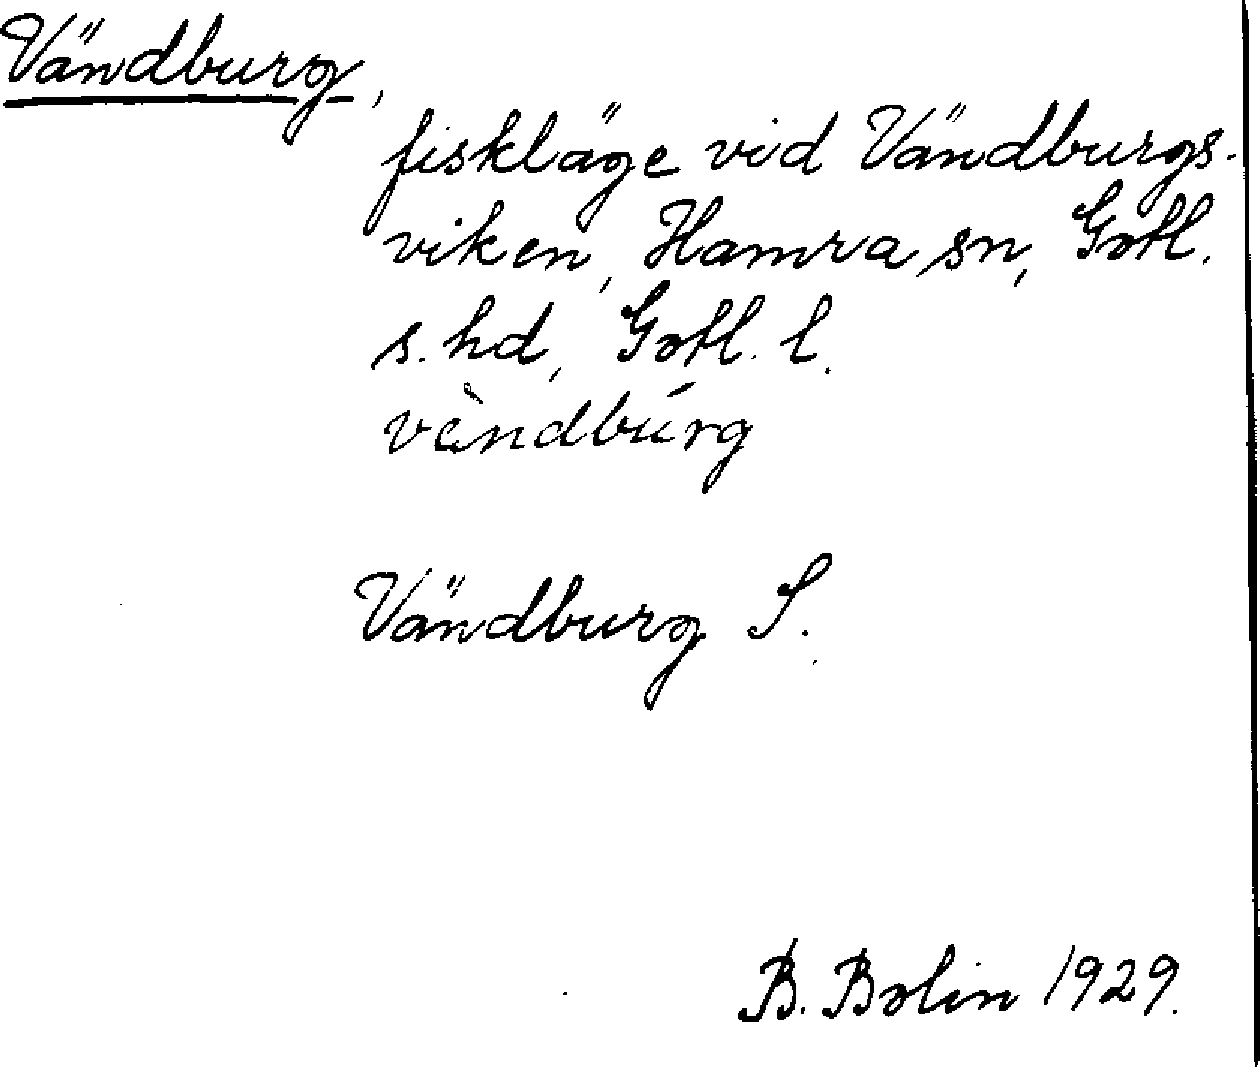 Vändburg,
fiskläge vid Vändburgs-
viken, Hamra sn, Gotl.
s. hd, Gotl. l.
vàndbúrg
Vändburg S.
B. Bolin 1929.